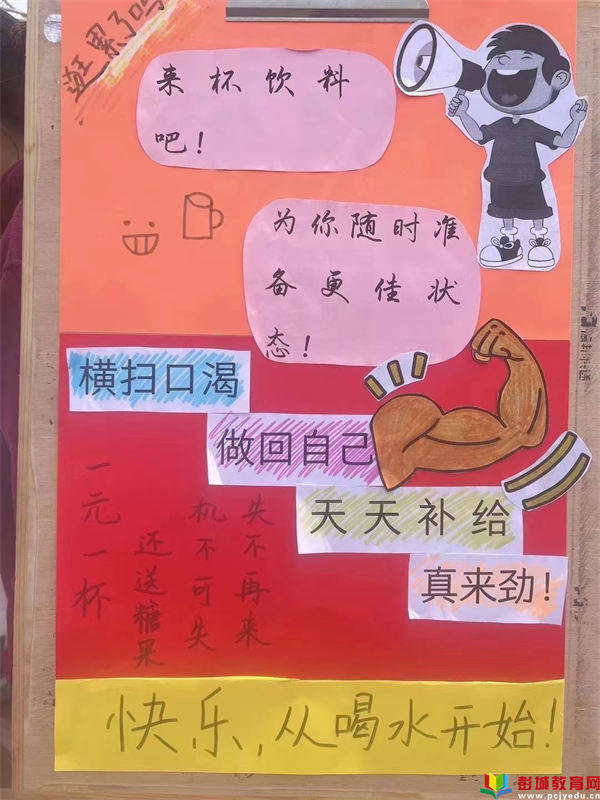 逛累了吗
来杯饮料
吧！
为你随时准
备更佳状
态！
横扫口渴
做回自己
天天补给
真来劲！
一元一杯
还送糖果
机不可失
失不再来
快乐，从喝水开始！
彭城教育网
www.pcjyedu.cn